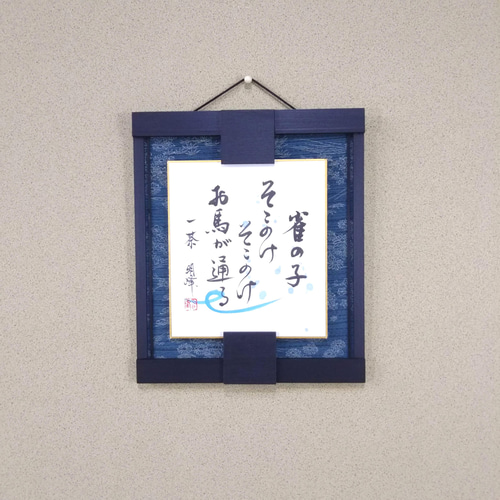 雀の子
そこのけ
そこのけ
お馬が通る
一茶